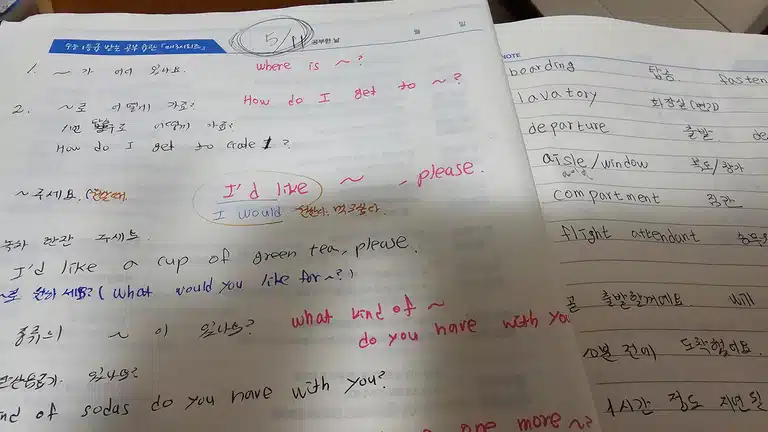 수능 1등급 받는 공부 습관 「매3시리즈」
5/11 공부한 날 월 일
1. ~ 가 어디 있나요. where is ~?
2. ~로 어떻게 가요? How do I get to ~?
1번 탑승구로 어떻게 가요?
How do I get to Gate 1?
~주세요. I'd like ~ , please.
I would 원한다. 먹고싶다.
녹차 한잔 주세요.
I'd like a cup of green tea, please.
(what would you like for ~?)
종류의 ~ 이 있나요? what kind of ~
do you have with you
있나요?
nd of sodas do you have with you?
one more ~?
NOTE
boarding 탑승 fasten
lavatory 화장실(변기)
departure 출발 de
aisle/window 복도/창가
compartment 짐칸
flight attendant 승무원
곧 출발할거예요. will
도착했어요.
1시간 정도 지연될